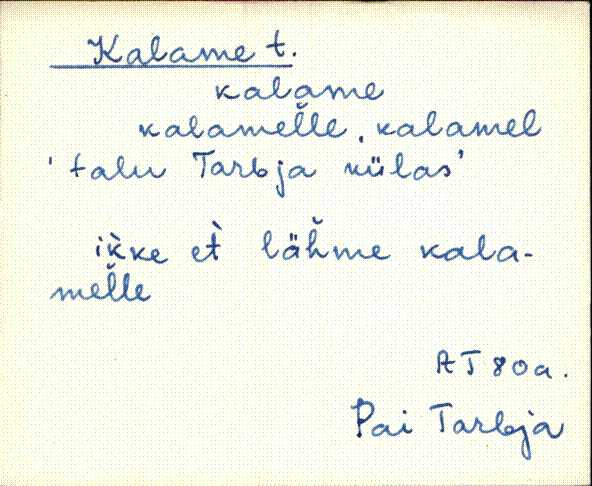 Kalame t.
kalame
kalamel̆le, kalamel
'talu Tarbja külas'
ik̀ke et̀ läh̆me kala-
mel̆le
AT 80a.
Pai Tarbja